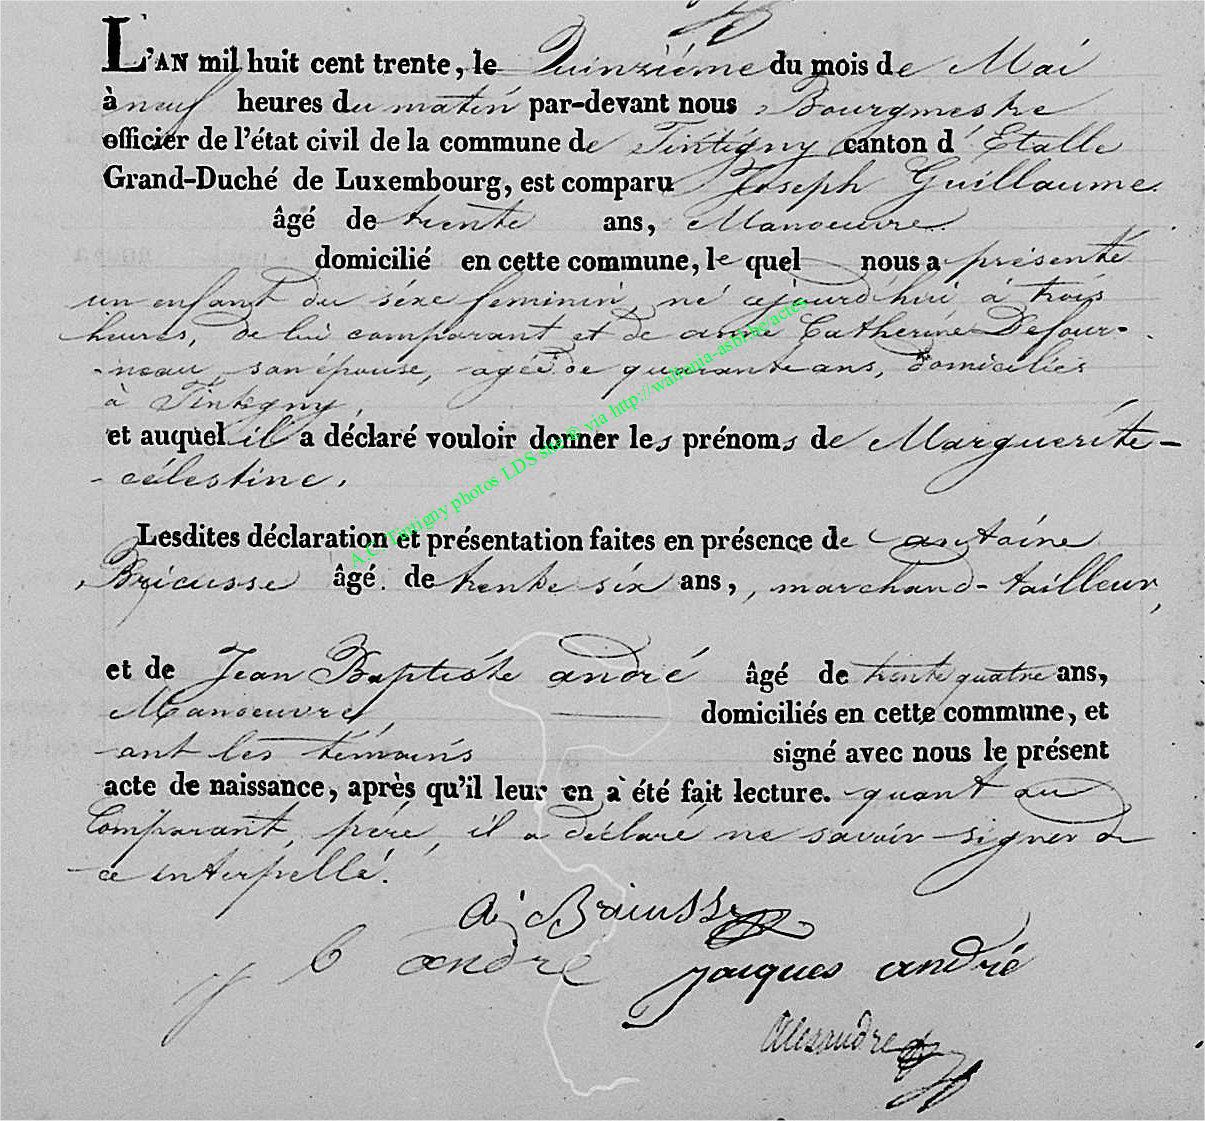 L'AN mil huit cent trente, le Quinziéme du mois de Mai
à neuf heures du matin par-devant nous Bourgmestre
officier de l'état civil de la commune de Tintigny canton d'Etalle
Grand-Duché de Luxembourg, est comparu Joseph Guillaume
âgé de trente ans, Manoeuvre
domicilié en cette commune, le quel nous a présenté
un enfant du séxe feminin, né cejourd'hui à trois
heures, de lui comparant et de anne Catherine Defour-
-neau son épouse, agée de quarante ans, domiciliés
à Tintigny,
et auquel il a déclaré vouloir donner les prénoms de Marguerite-
-célestine.
Lesdites déclaration et présentation faites en présence de antoine
Bricusse âgé de trente six ans, marchand-tailleur,
et de Jean Baptiste andré âgé de trente quatre ans,
Manoeuvre, domiciliés en cette commune, et
ont les témoins signé avec nous le présent
acte de naissance, après qu'il leur en a été fait lecture. quant au
Comparant, pére, il a déclaré ne savoir signer de
ce interpellé.
A. Bricusse
J B andré Jacques andré
Alexandre
A.C. Tintigny photos LDS site ® via http://wallonia-asbl.be/actes